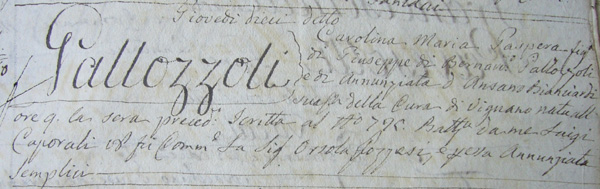 Giovedì dieci detto
Pallozzoli
Carolina Maria Gaspera fig.
di Giuseppe di Bernard. Pallozzoli
e di Annunziata d' Ansano Bianciardi
della Cura di Vignano nata all'
ore 9. la sera preced. Scritta al No 792. Batt. da me Luigi
Caporali Comm. La Sig. Orsola e essa Annunziata
Semplici